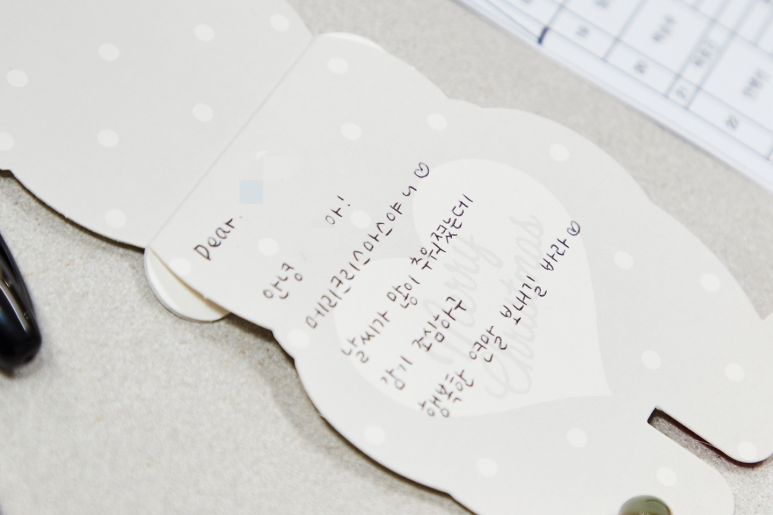 Dear.
안녕 아!
메리크리스마스야
날씨가 많이 추워졌는데
감기 조심하구
행복한 연말 보내길 바라
Merry
Christmas